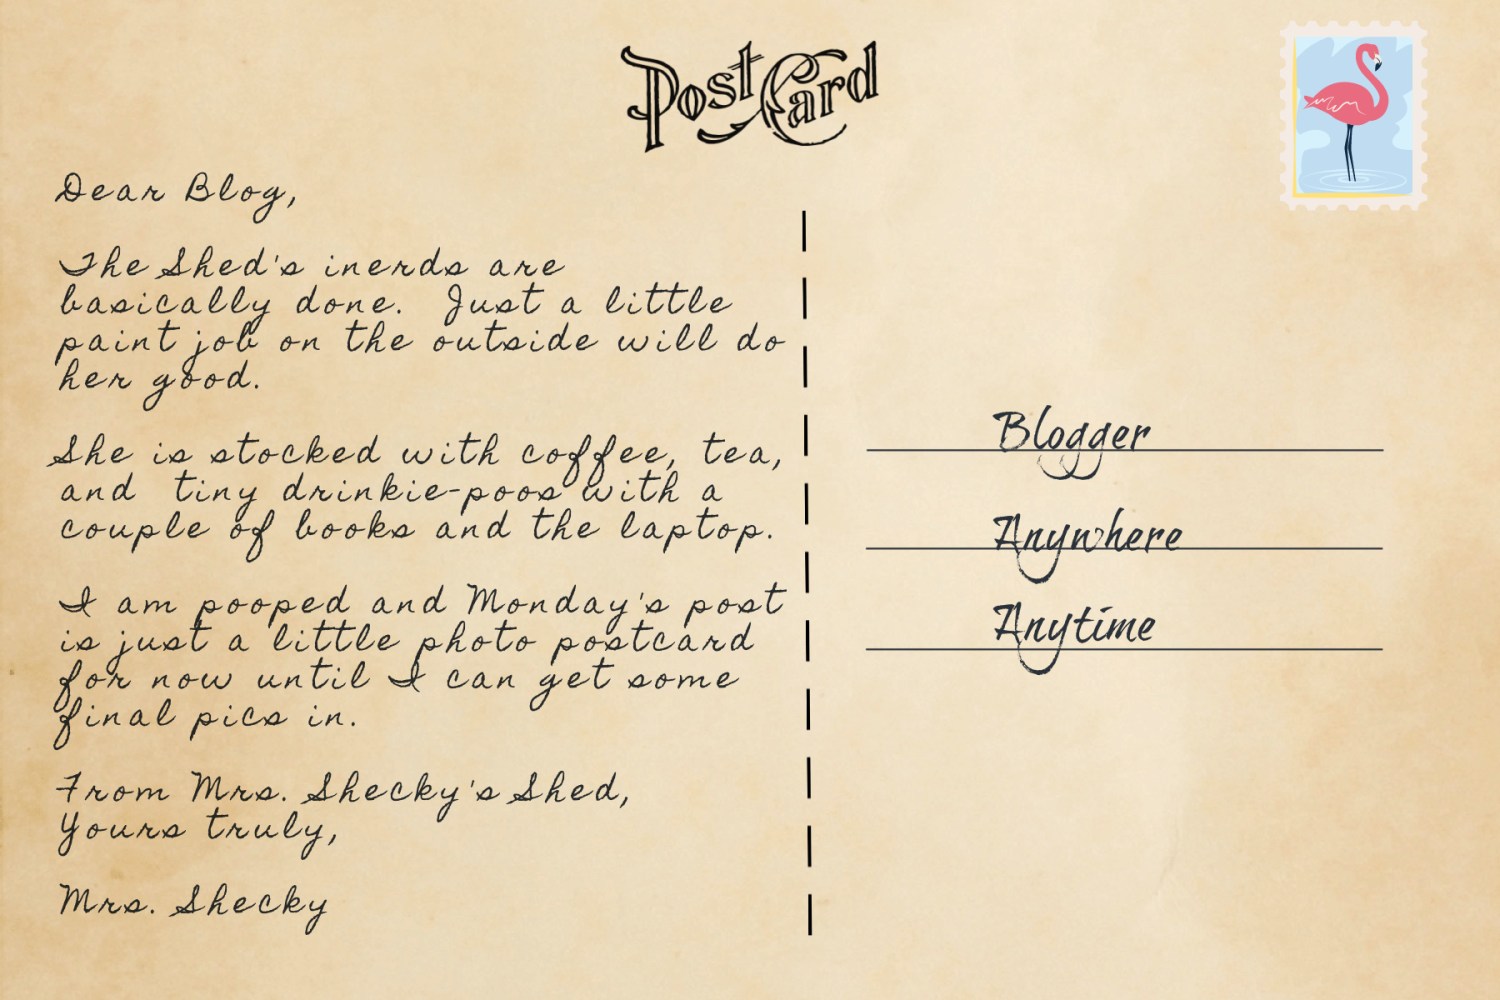 PostCard
Dear Blog,
The Shed's inerds are
basically done. Just a little
paint job on the outside will do
her good.
She is stocked with coffee, tea,
and tiny drinkie-poos with a
couple of books and the laptop.
I am pooped and Monday's post
is just a little photo postcard
for now until I can get some
final pics in.
From Mrs. Shecky's Shed,
Yours truly,
Mrs. Shecky
Blogger
Anywhere
Anytime